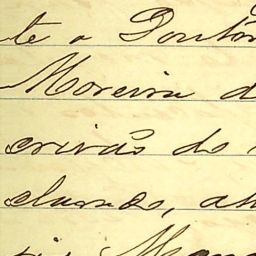 te o Doutor
Moreira d
crivão do
clarado, ah